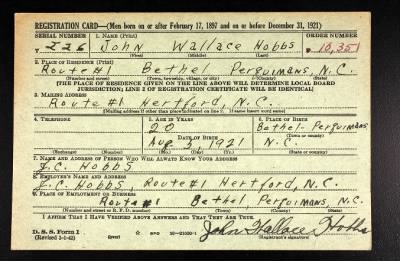 REGISTRATION CARD—(Men born on or after February 17, 1897 and on or before December 31, 1921)
SERIAL NUMBER 1. NAME (Print) ORDER NUMBER
T 226 John Wallace Hobbs 10,351
(First) (Middle) (Last)
2. PLACE OF RESIDENCE (Print)
Route #1 Bethel Perquimans, N.C.
(Number and street) (Town, township, village, or city) (County) (State)
[THE PLACE OF RESIDENCE GIVEN ON THE LINE ABOVE WILL DETERMINE LOCAL BOARD
JURISDICTION; LINE 2 OF REGISTRATION CERTIFICATE WILL BE IDENTICAL]
3. MAILING ADDRESS
Route #1 Hertford, N.C.
[Mailing address if other than place indicated on line 2. If same insert word same]
4. TELEPHONE 5. AGE IN YEARS 6. PLACE OF BIRTH
20 Bethel - Perquimans
DATE OF BIRTH (Town or county)
Aug. 3, 1921 N.C.
(Exchange) (Number) (Mo.) (Day) (Yr.) (State or country)
7. NAME AND ADDRESS OF PERSON WHO WILL ALWAYS KNOW YOUR ADDRESS
J.C. HOBBS
8. EMPLOYER'S NAME AND ADDRESS
J.C. HOBBS Route #1 Hertford, N.C.
9. PLACE OF EMPLOYMENT OR BUSINESS
Route #1 Bethel, Perquimans, N.C.
(Number and street or R. F. D. number) (Town) (County) (State)
I AFFIRM THAT I HAVE VERIFIED ABOVE ANSWERS AND THAT THEY ARE TRUE.
D. S. S. Form 1
(Revised 1-1-42) (over) John Wallace Hobbs
(Registrant's signature)